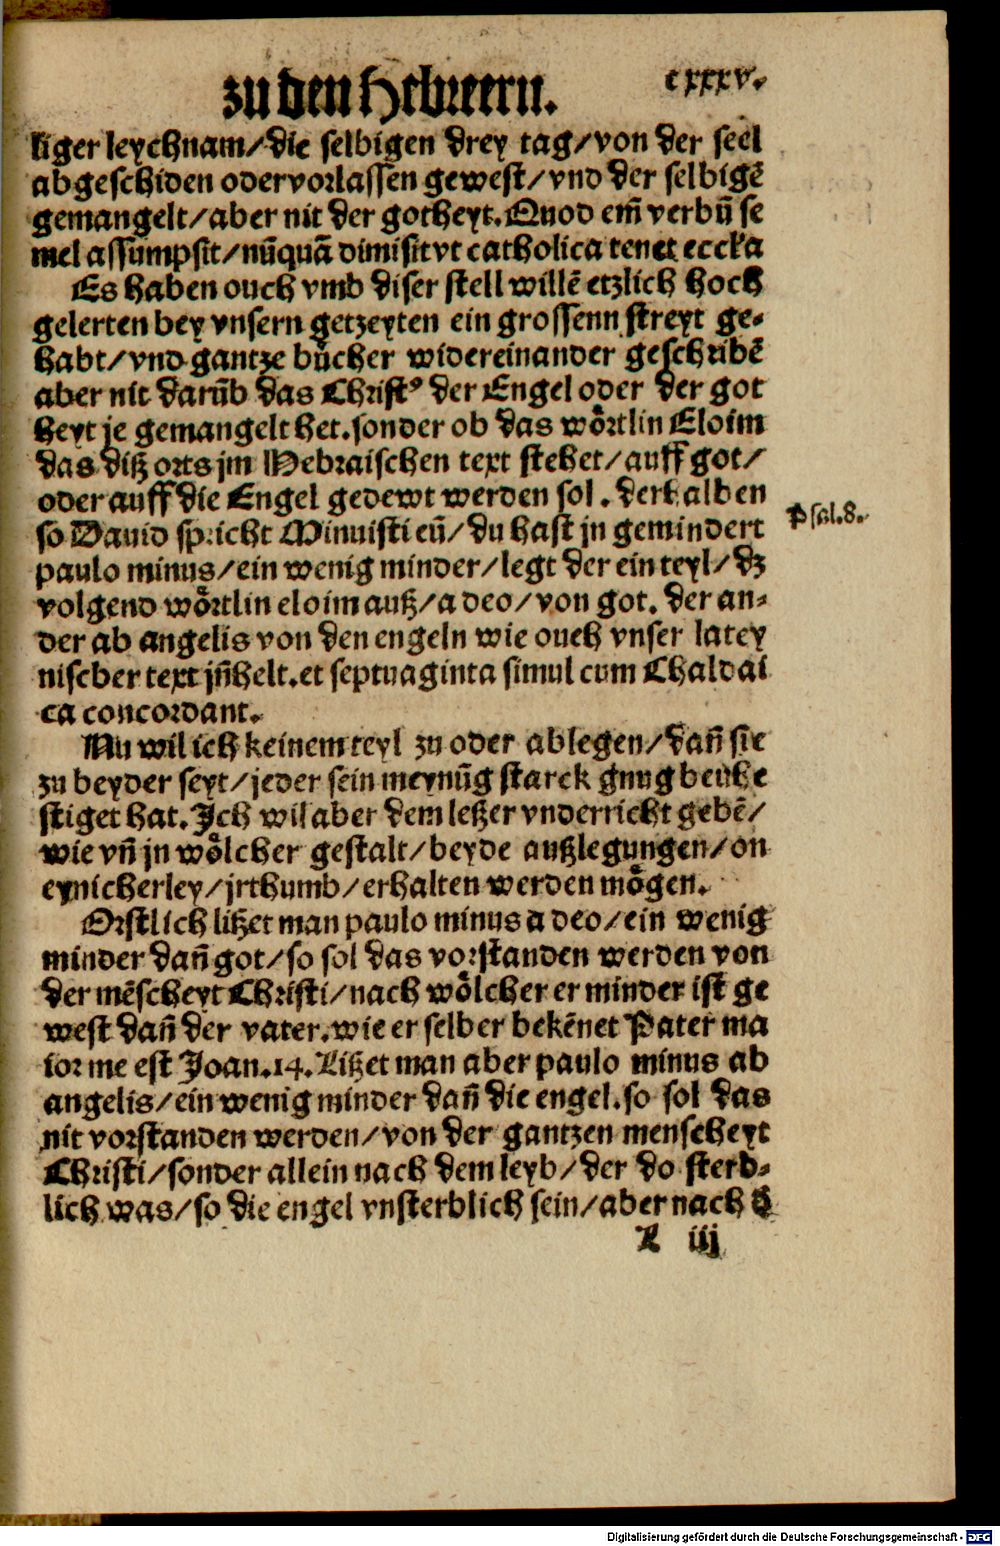 zu den Hebreern.
cxxxv.
liger leychnam/die selbigen drey tag/von der seel
abgeschiden oder vorlassen gewest/vnd der selbigē
gemangelt/aber nit der gotheyt. Quod em̄ verbū se
mel assumpsit/nūquā dimisit vt catholica tenet eccła
Es haben ouch vmb diser stell willē etzlich hoch
gelerten bey vnsern getzeyten ein grossenn streyt ge-
habt/vnd gantze bůcher widereinander geschribē
aber nit darūb das Christꝰ der Engel oder der got
heyt je gemangelt het. sonder ob das wörtlin Eloim
das ditz orts jm Hebraischen text stehet/auff got/
oder auff die Engel gedewt werden sol. derhalben
so Dauid spricht Minuisti eū/du hast jn gemindert
Psal.8.
paulo minus/ein wenig minder/legt der ein teyl/dz
volgend wörtlin eloim auß/a deo/von got. der an-
der ab angelis von den engeln wie ouch vnser latey
nischer text jñhelt. et septuaginta simul cum Chaldai
ca concordant.
Nu wil ich keinem teyl zu oder ablegen/dañ sie
zu beyder seyt/jeder sein meynūg starck gnug beuhe
stiget hat. Ich wil aber dem leßer vnderricht gebē/
wie vñ jn wölcher gestalt/beyde außlegungen/on
eynicherley/jrthumb/erhalten werden mögen.
Erstlich lißet man paulo minus a deo/ein wenig
minder dañ got/so sol das vorstanden werden von
der mēscheyt Christi/nach wölcher er minder ist ge
west dañ der vater. wie er selber bekēnet Pater ma
ior me est Joan.14. Lißet man aber paulo minus ab
angelis/ein wenig minder dañ die engel. so sol das
nit vorstanden werden/von der gantzen menscheyt
Christi/sonder allein nach dem leyb/der do sterb-
lich was/so die engel vnsterblich sein/aber nach
iij
Digitalisierung gefördert durch die Deutsche Forschungsgemeinschaft - DFG